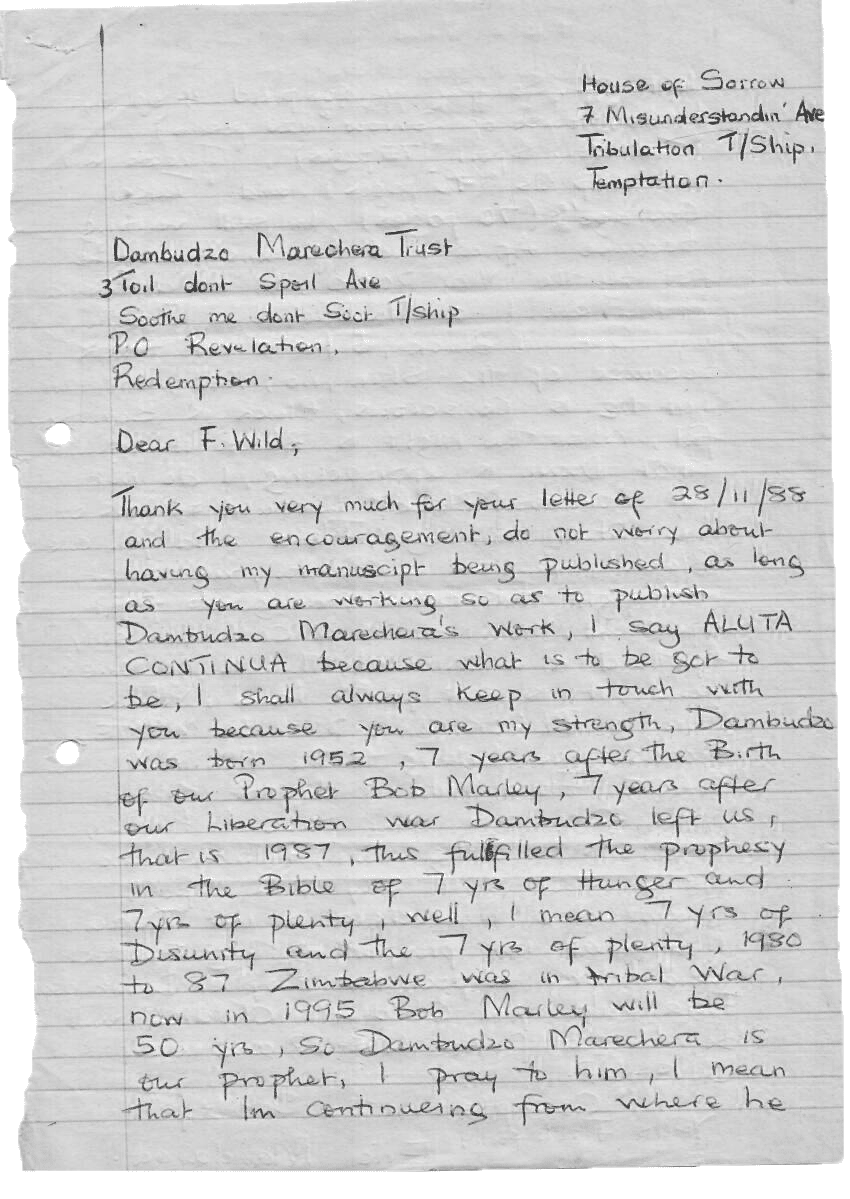 House of Sorrow
7 Misunderstandin' Ave
Tribulation T/Ship.
Temptation.
Dambudzo Marechera Trust
3 Toil dont Spoil Ave
Soothe me dont Scot T/ship
P.O Revelation,
Redemption.
Dear F. Wild,
Thank you very much for your letter of 28/11/88
and the encouragement, do not worry about
having my manuscipt being published, as long
as you are working so as to publish
Dambudzo Marechera's work, I say ALUTA
CONTINUA because what is to be got to
be, I shall always keep in touch with
you because you are my strength, Dambudzo
was born 1952, 7 years after the Birth
of our Prophet Bob Marley, 7 years after
our Liberation war Dambudzo left us,
that is 1987, this fulfilled the prophesy
in the Bible of 7 yrs of Hunger and
7yrs of plenty, well, I mean 7 yrs of
Disunity and the 7 yrs of plenty, 1980
to 87 Zimbabwe was in tribal war,
now in 1995 Bob Marley will be
50 yrs, So Dambudzo Marechera is
our prophet, I pray to him, I mean
that Im continueing from where he